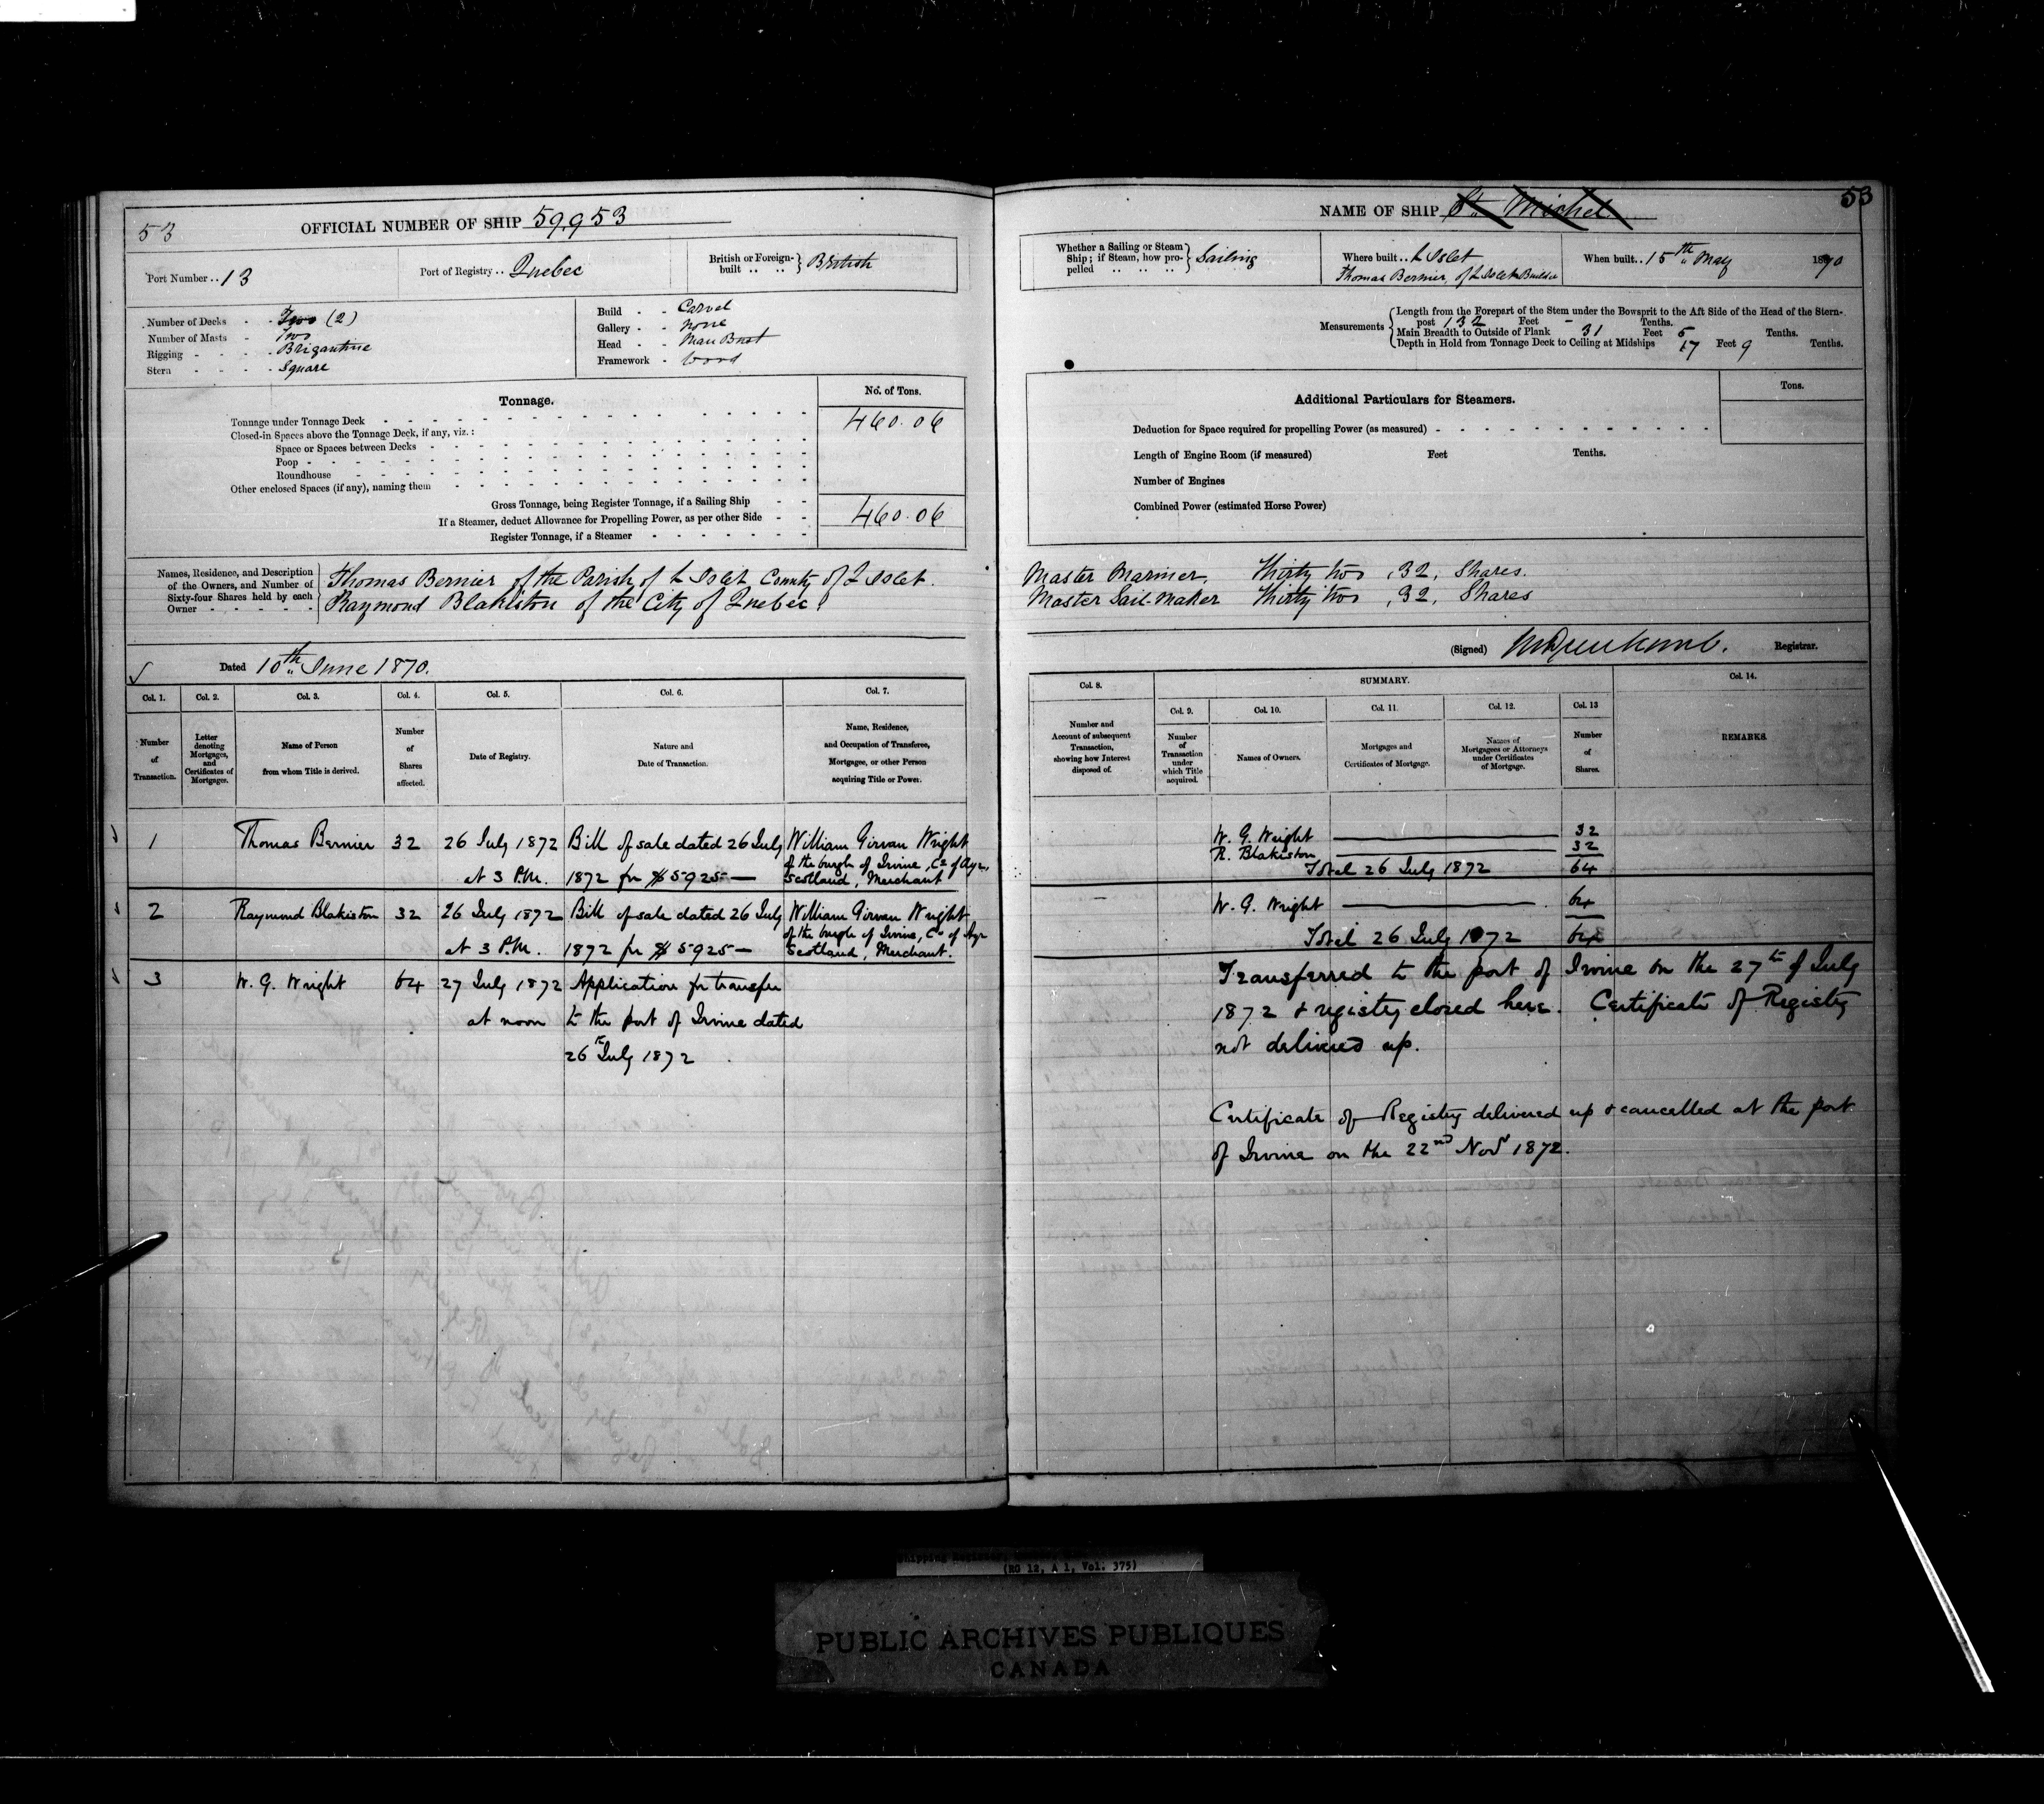 53
OFFICIAL NUMBER OF SHIP 59,953
Port Number . . 13
Port of Registry . . Quebec
British or Foreign-built . . . . } British
Number of Decks - - Two (2)
Number of Masts - Two
Rigging - - - - Brigantine
Stern - - - - Square
Build - - Carvel
Gallery - - None
Head - - Man Bust
Framework - Wood
Tonnage.
No. of Tons.
Tonnage under Tonnage Deck 460.06
Closed-in Spaces above the Tonnage Deck, if any, viz. :
Space or Spaces between Decks
Poop
Roundhouse
Other enclosed Spaces (if any), naming them
Gross Tonnage, being Register Tonnage, if a Sailing Ship
If a Steamer, deduct Allowance for Propelling Power, as per other Side 460.06
Register Tonnage, if a Steamer
Names, Residence, and Description
of the Owners, and Number of
Sixty-four Shares held by each
Owner
Thomas Bernier of the Parish of L'Islet County of L'Islet.
Raymond Blakiston of the City of Quebec
Dated 10th June 1870.
Col. 1. Col. 2. Col. 3. Col. 4. Col. 5. Col. 6. Col. 7.
Number of Transaction.
Letter denoting Mortgages, and Certificates of Mortgages.
Name of Person from whom Title is derived.
Number of Shares affected.
Date of Registry.
Nature and Date of Transaction.
Name, Residence, and Occupation of Transferee, Mortgagee, or other Person acquiring Title or Power.
1 Thomas Bernier 32 26 July 1872 Bill of sale dated 26 July William Girvan Wright
of the burgh of Irvine, Co. of Ayr,
at 3 P.M. 1872 for $5925— Scotland, Merchant
2 Raymond Blakiston 32 26 July 1872 Bill of sale dated 26 July William Girvan Wright
of the burgh of Irvine, Co. of Ayr
at 3 P.M. 1872 for $5925— Scotland, Merchant.
3 W. G. Wright 64 27 July 1872 Application for transfer
at noon to the port of Irvine dated
26th July 1872
53
NAME OF SHIP St. Michel
Whether a Sailing or Steam Ship; if Steam, how propelled } Sailing
Where built . . L'Islet
Thomas Bernier, of L'Islet Builder
When built . . 15th May 1870
Measurements
Length from the Forepart of the Stem under the Bowsprit to the Aft Side of the Head of the Stern-
post 132 Feet - Tenths.
Main Breadth to Outside of Plank 31 Feet 5 Tenths.
Depth in Hold from Tonnage Deck to Ceiling at Midships 17 Feet 9 Tenths.
Additional Particulars for Steamers.
Tons.
Deduction for Space required for propelling Power (as measured)
Length of Engine Room (if measured) Feet Tenths.
Number of Engines
Combined Power (estimated Horse Power)
Master Mariner, Thirty two ,32, Shares.
Master Sail-Maker Thirty two ,32, Shares
(Signed) Registrar.
Col. 8. SUMMARY. Col. 14.
Col. 9. Col. 10. Col. 11. Col. 12. Col. 13
Number and Account of subsequent Transaction, showing how Interest disposed of.
Number of Transaction under which Title acquired.
Names of Owners.
Mortgages and Certificates of Mortgage.
Names of Mortgagees or Attorneys under Certificates of Mortgage.
Number of Shares.
REMARKS.
W. G. Wright 32
R. Blakiston 32
Total 26 July 1872 64
W. G. Wright 64
Total 26 July 1872 64
Transferred to the port of Irvine on the 27th of July
1872 & registry closed here. Certificate of Registry
not delivered up.
Certificate of Registry delivered up & cancelled at the port
of Irvine on the 22nd Novr 1872.
(RG 12, A 1, Vol. 375)
PUBLIC ARCHIVES PUBLIQUES
CANADA